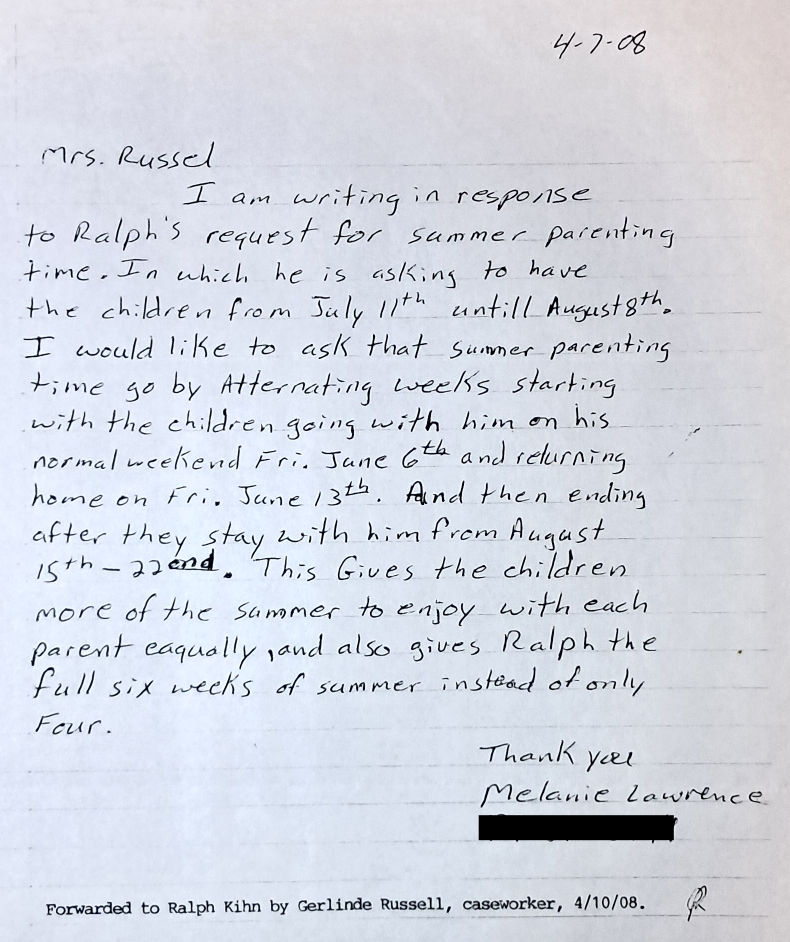 4-7-08
Mrs. Russel
I am writing in response
to Ralph's request for summer parenting
time. In which he is asking to have
the children from July 11th untill August 8th.
I would like to ask that summer parenting
time go by Atternating weeks starting
with the children going with him on his
normal weekend Fri. June 6th and returning
home on Fri. June 13th. And then ending
after they stay with him from August
15th - 22end. This Gives the children
more of the summer to enjoy with each
parent eaqually, and also gives Ralph the
full six weeks of summer instead of only
Four.
Thank you
Melanie Lawrence
Forwarded to Ralph Kihn by Gerlinde Russell, caseworker, 4/10/08. GR